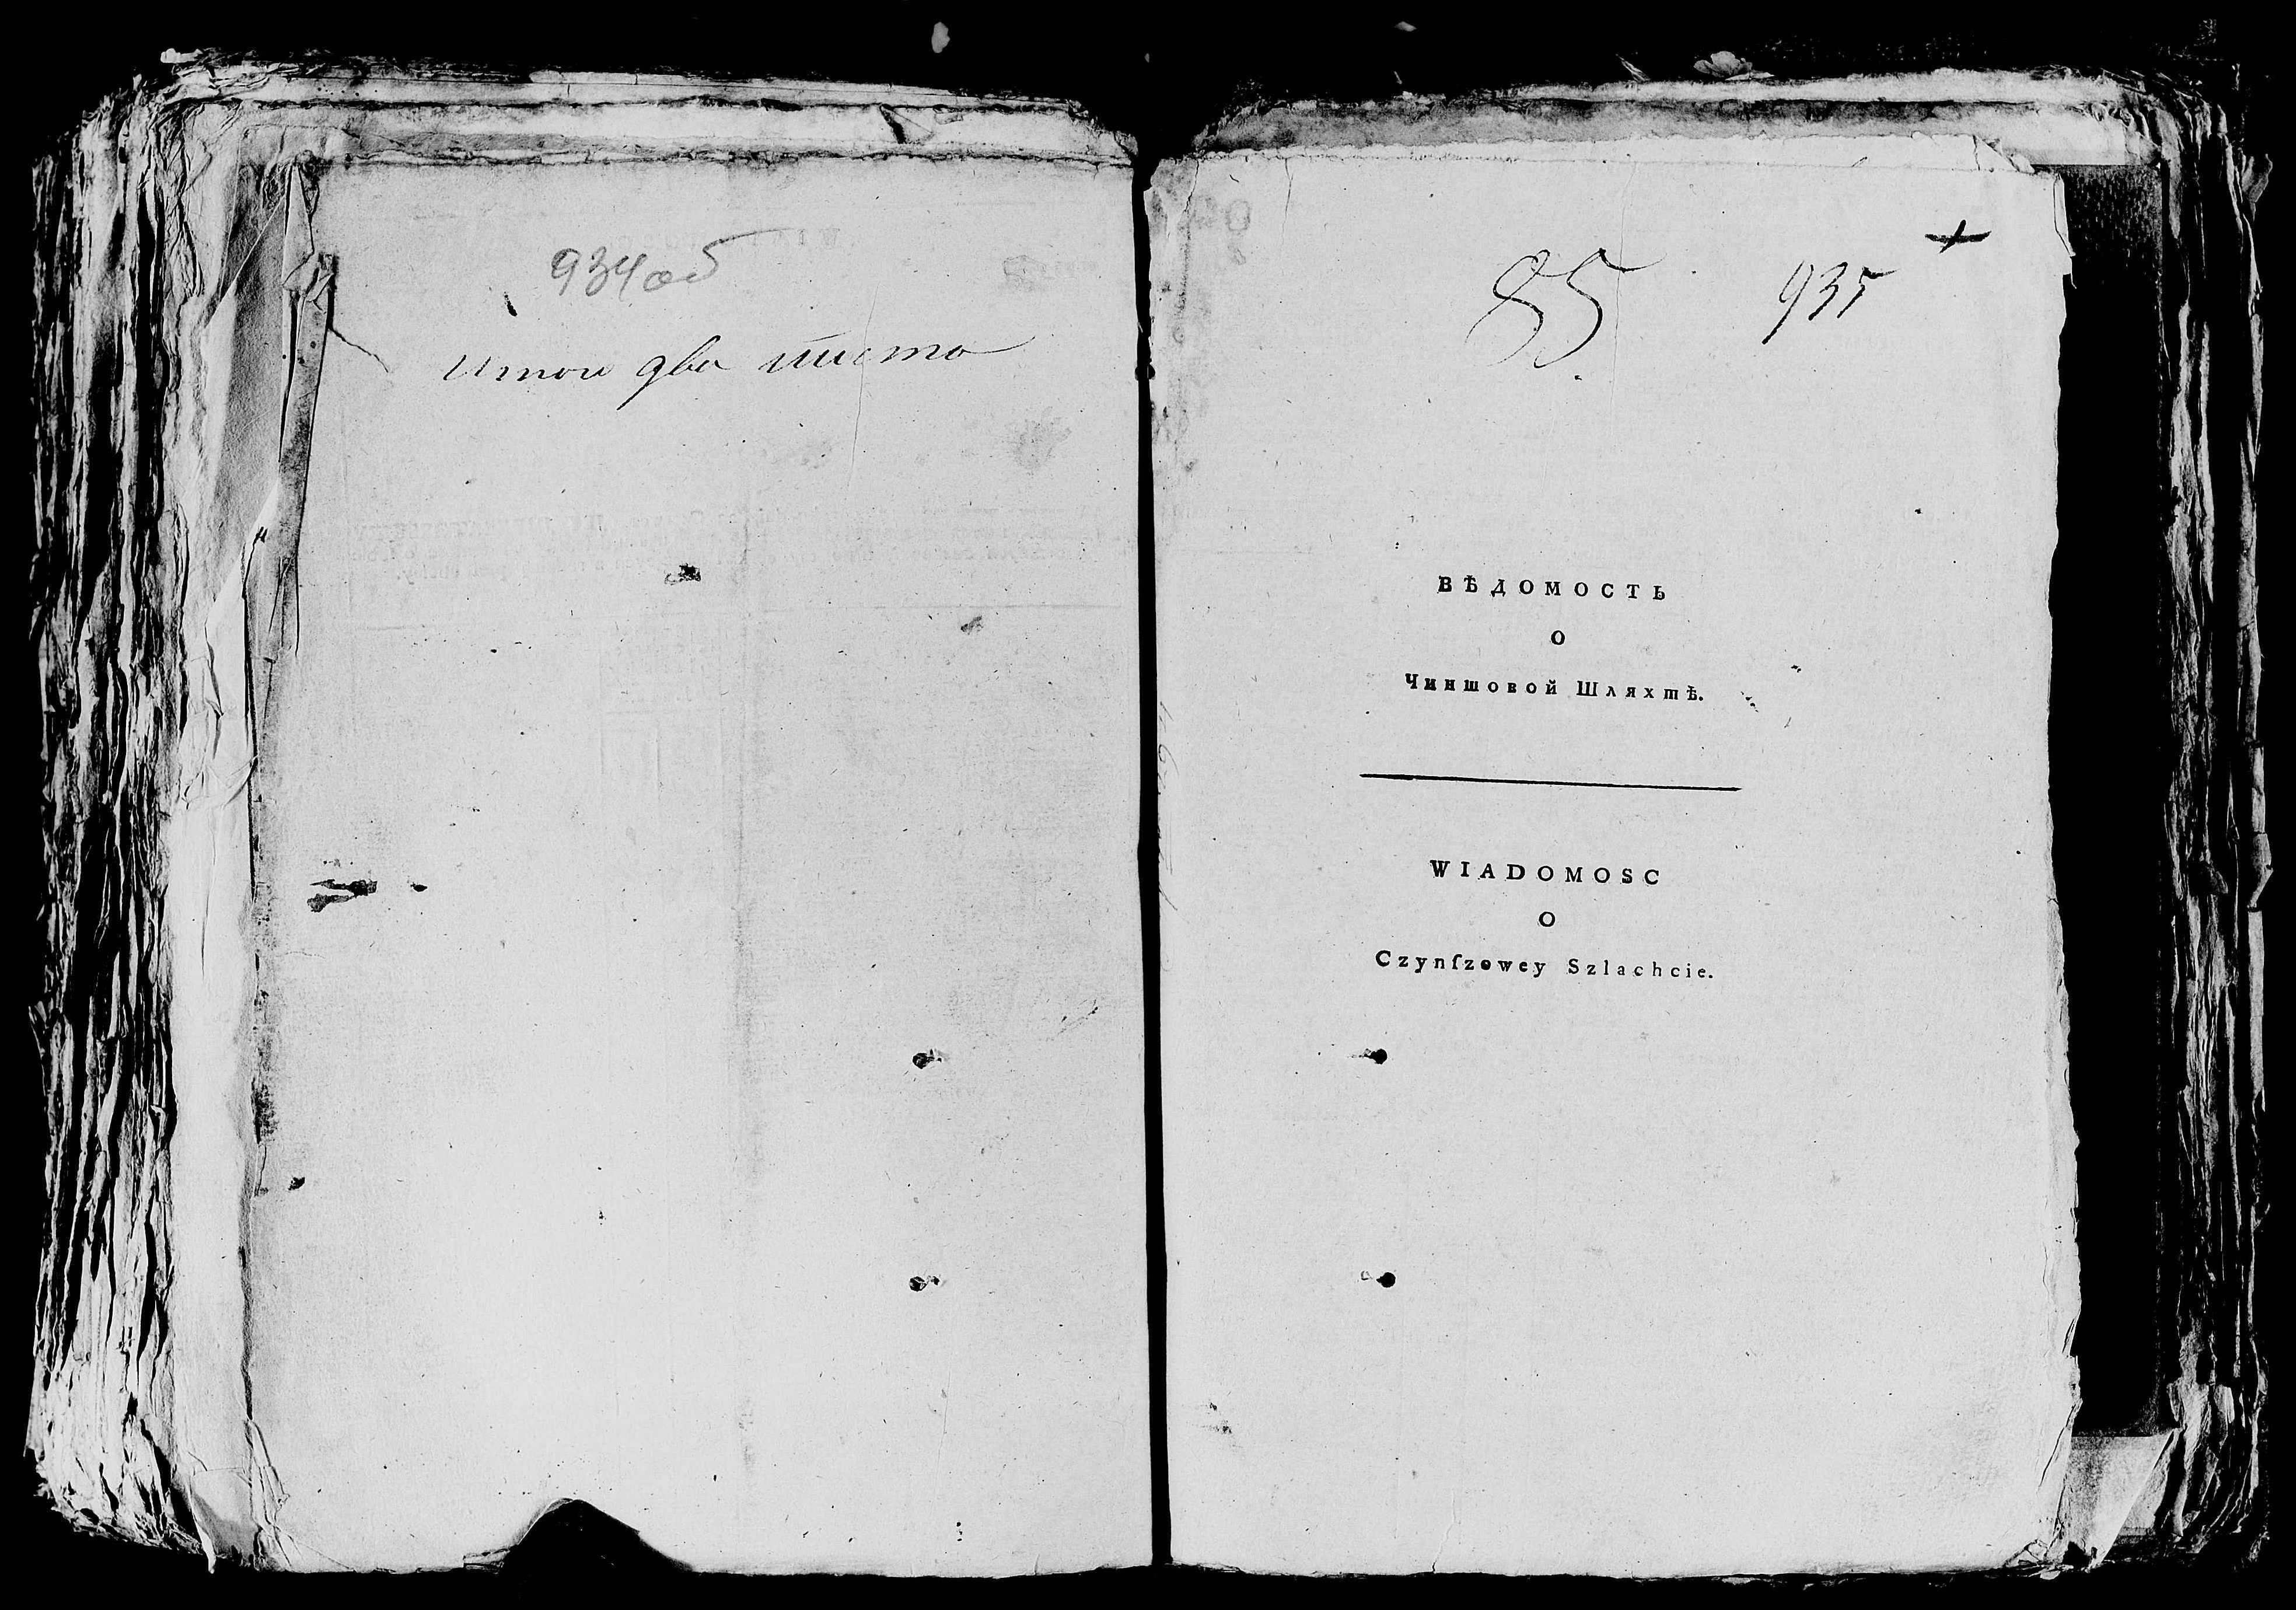 934об
Итого два листа
85.
935
ВѢДОМОСТЬ
О
Чиншовой Шляхтѣ.
WIADOMOSC
O
Czynſzowey Szlachcie.